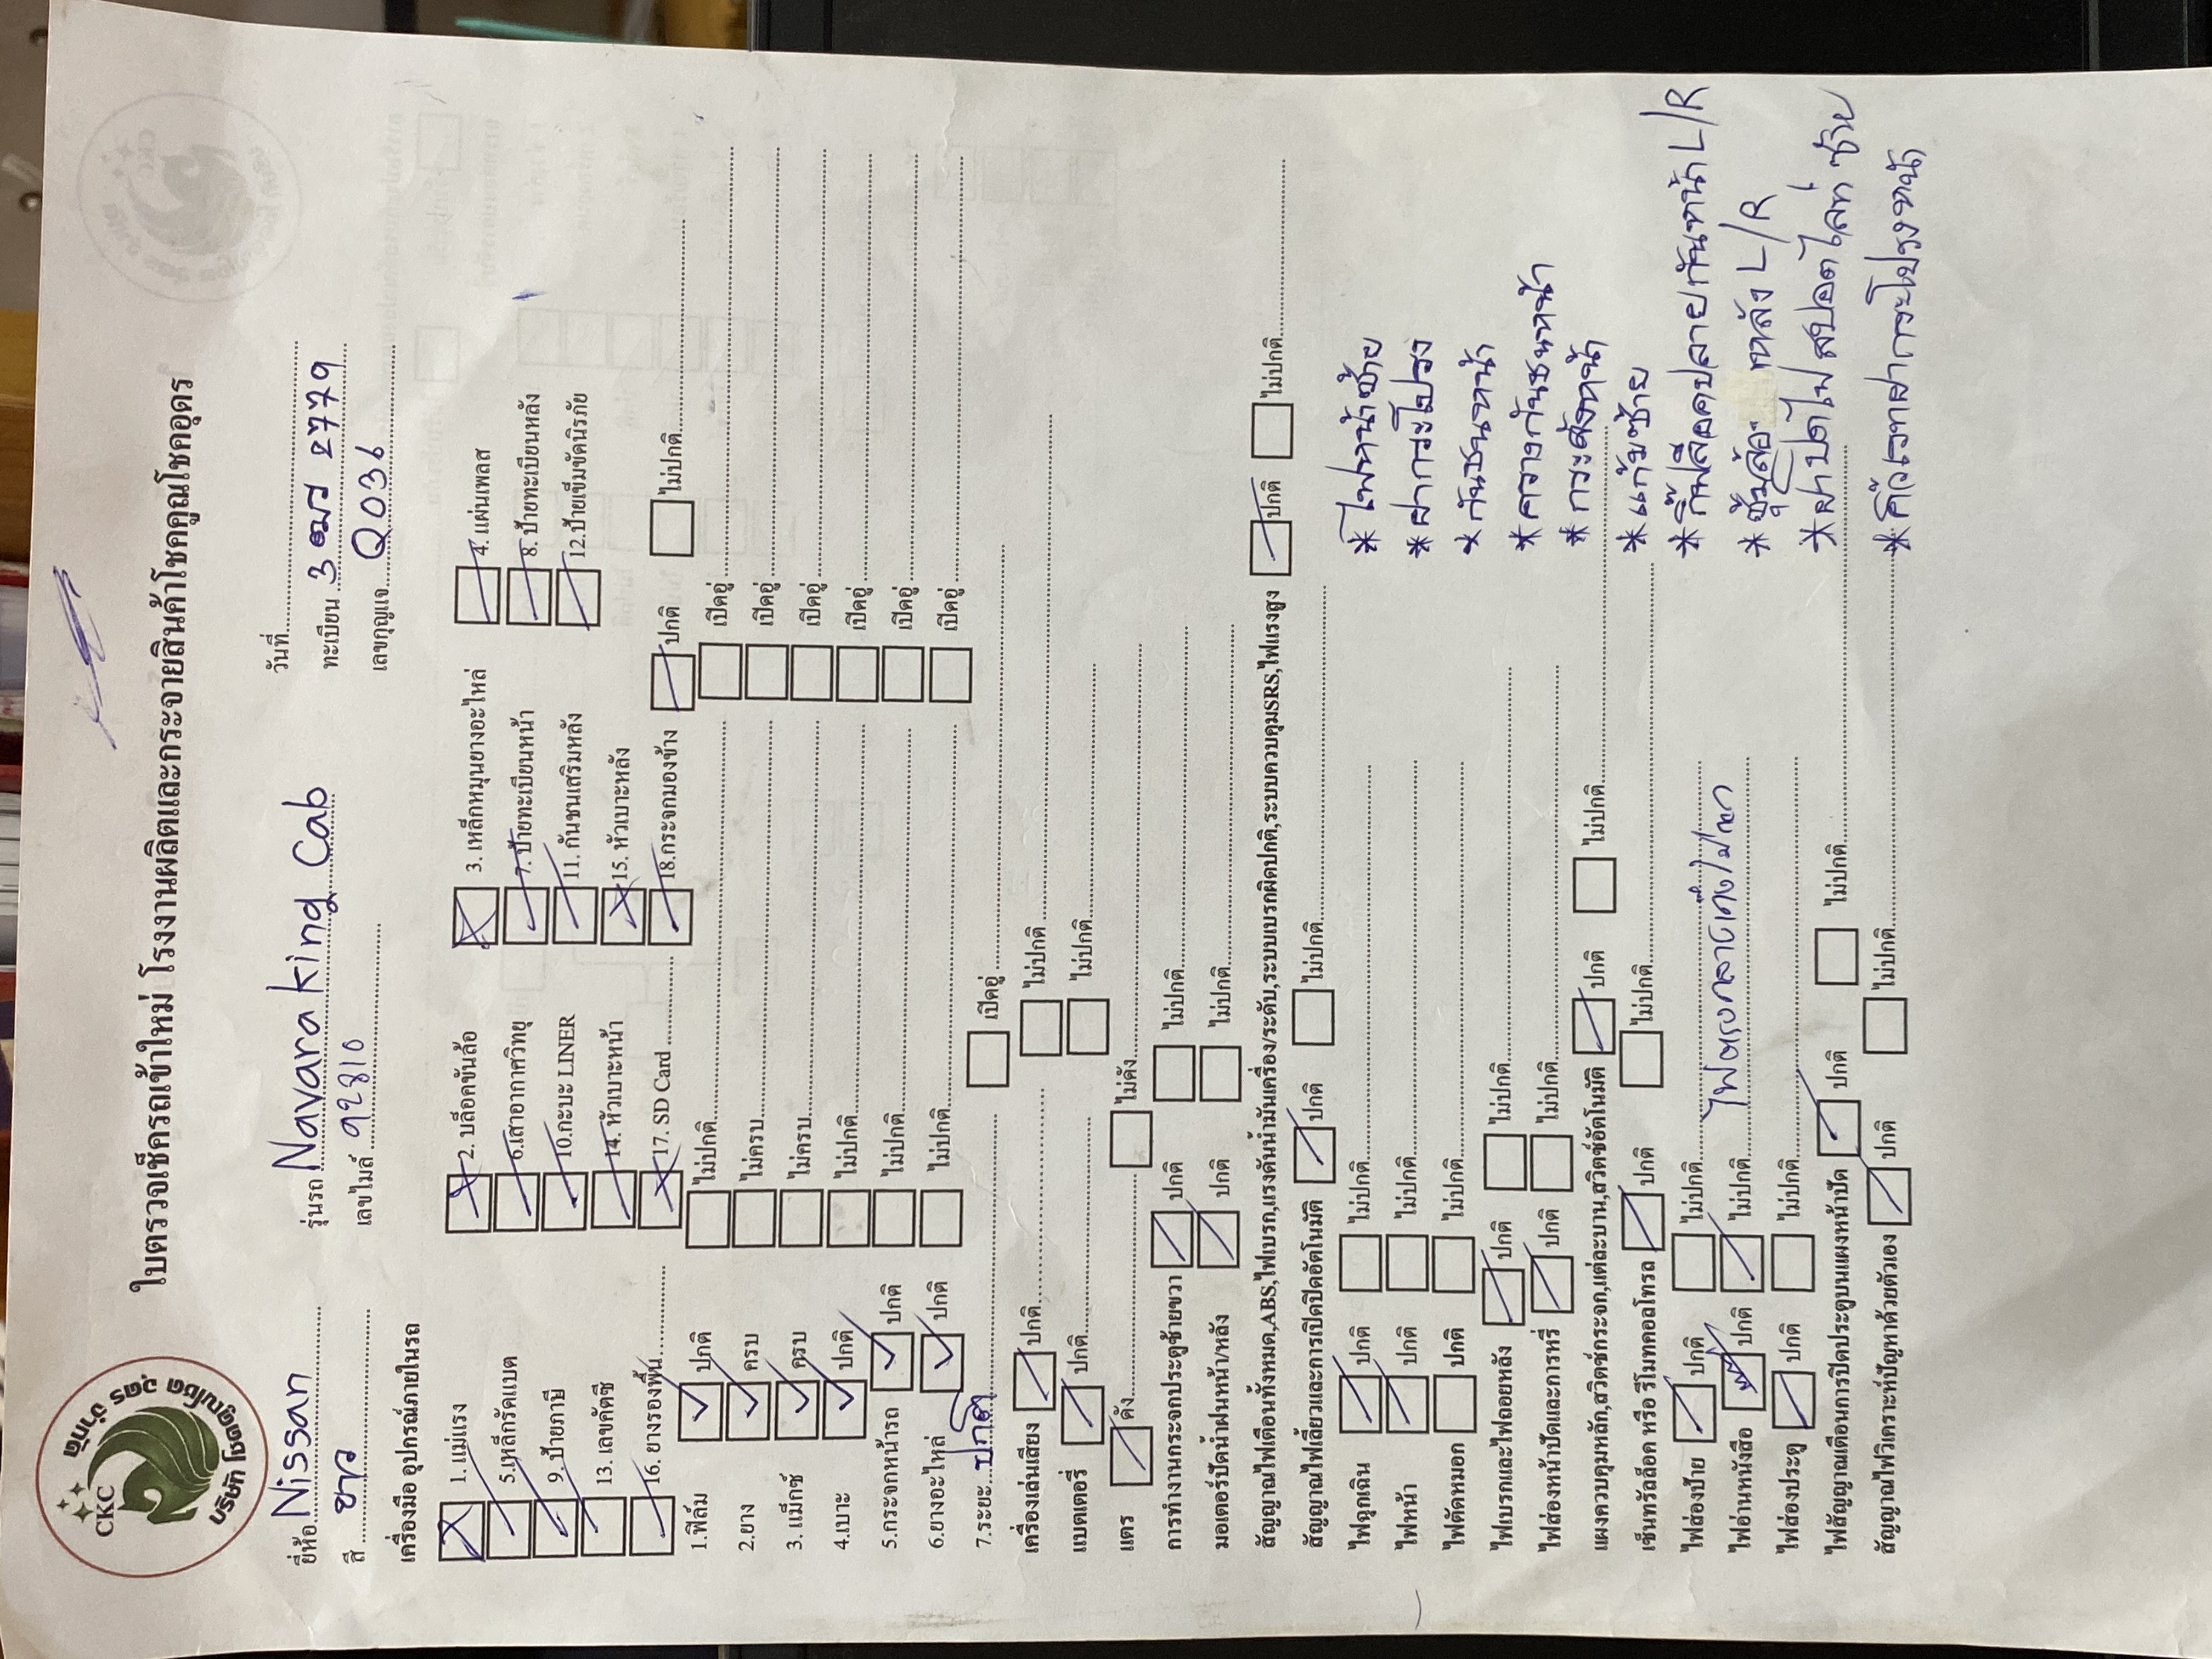 CKC
บริษัท โชคคูณโชค อุดร จำกัด
ใบตรวจเช็ครถเข้าใหม่ โรงงานผลิตและกระจายสินค้าโชคคูณโชคอุดร
ยี่ห้อ Nissan รุ่นรถ Navara king Cab วันที่
สี ขาว เลขไมล์ 92810 ทะเบียน 3 ฒฌ 2779
เลขกุญแจ Q036
เครื่องมือ อุปกรณ์ภายในรถ
1. แม่แรง 2. บล็อคขันล้อ 3. เหล็กหมุนยางอะไหล่ 4. แผ่นเพลส
5.เหล็กรัดแบต 6.เสาอากาศวิทยุ 7. ป้ายทะเบียนหน้า 8. ป้ายทะเบียนหลัง
9. ป้ายภาษี 10.กะบะ LINER 11. กันชนเสริมหลัง 12.ป้ายเข็มขัดนิรภัย
13. เลขคัตซี 14. หัวเบาะหน้า 15. หัวเบาะหลัง
16. ยางรองพื้น 17. SD Card 18.กระจกมองข้าง ปกติ ไม่ปกติ
1.ฟิล์ม ปกติ ไม่ปกติ เปิดอู่
2.ยาง ครบ ไม่ครบ เปิดอู่
3. แม็กซ์ ครบ ไม่ครบ เปิดอู่
4.เบาะ ปกติ ไม่ปกติ เปิดอู่
5.กระจกหน้ารถ ปกติ ไม่ปกติ เปิดอู่
6.ยางอะไหล่ ปกติ ไม่ปกติ เปิดอู่
7.ระยะ ปกติ เปิดอู่
เครื่องเล่นเสียง ปกติ ไม่ปกติ
แบตเตอรี่ ปกติ ไม่ปกติ
แตร ดัง ไม่ดัง
การทำงานกระจกประตูซ้ายขวา ปกติ ไม่ปกติ
มอเตอร์ปัดน้ำฝนหน้า/หลัง ปกติ ไม่ปกติ
สัญญาณไฟเตือนทั้งหมด,ABS,ไฟเบรก,แรงดันน้ำมันเครื่อง/ระดับ,ระบบเบรกผิดปกติ,ระบบควบคุมSRS,ไฟแรงสูง ปกติ ไม่ปกติ
สัญญาณไฟเลี้ยวและการเปิดปิดอัตโนมัติ ปกติ ไม่ปกติ
ไฟฉุกเฉิน ปกติ ไม่ปกติ
* ไฟหน้าซ้าย
ไฟหน้า ปกติ ไม่ปกติ
* ฝากระโปรง
ไฟตัดหมอก ปกติ ไม่ปกติ
* กันชนหน้า
ไฟเบรกและไฟถอยหลัง ปกติ ไม่ปกติ
* คางกันชนหน้า
ไฟส่องหน้าปัดและการหรี่ ปกติ ไม่ปกติ
* กระจังหน้า
แผงควบคุมหลัก,สวิตช์กระจก,แต่ละบาน,สวิตช์อัตโนมัติ ปกติ ไม่ปกติ
เซ็นทรัลล็อค หรือ รีโมทคอลโทรล ปกติ ไม่ปกติ
* แก้มซ้าย
ไฟส่องป้าย ปกติ ไม่ปกติ
* กิ๊ฟล็อคปลายกันหน้า L/R
ไฟอ่านหนังสือ ปกติ ไม่ปกติ ไฟตรงกลางเก๋งไม่ปกติ
* ซุ้มล้อ หลัง L/R
ไฟส่องประตู ปกติ ไม่ปกติ
* ฝาปิดไฟสปอตไลท์ ซ้าย
ไฟสัญญาณเตือนการปิดประตูบนแผงหน้าปัด ปกติ ไม่ปกติ
สัญญาณไฟวิเคราะห์ปัญหาด้วยตัวเอง ปกติ ไม่ปกติ
* คิ้วเวทฝากระโปรงหน้า